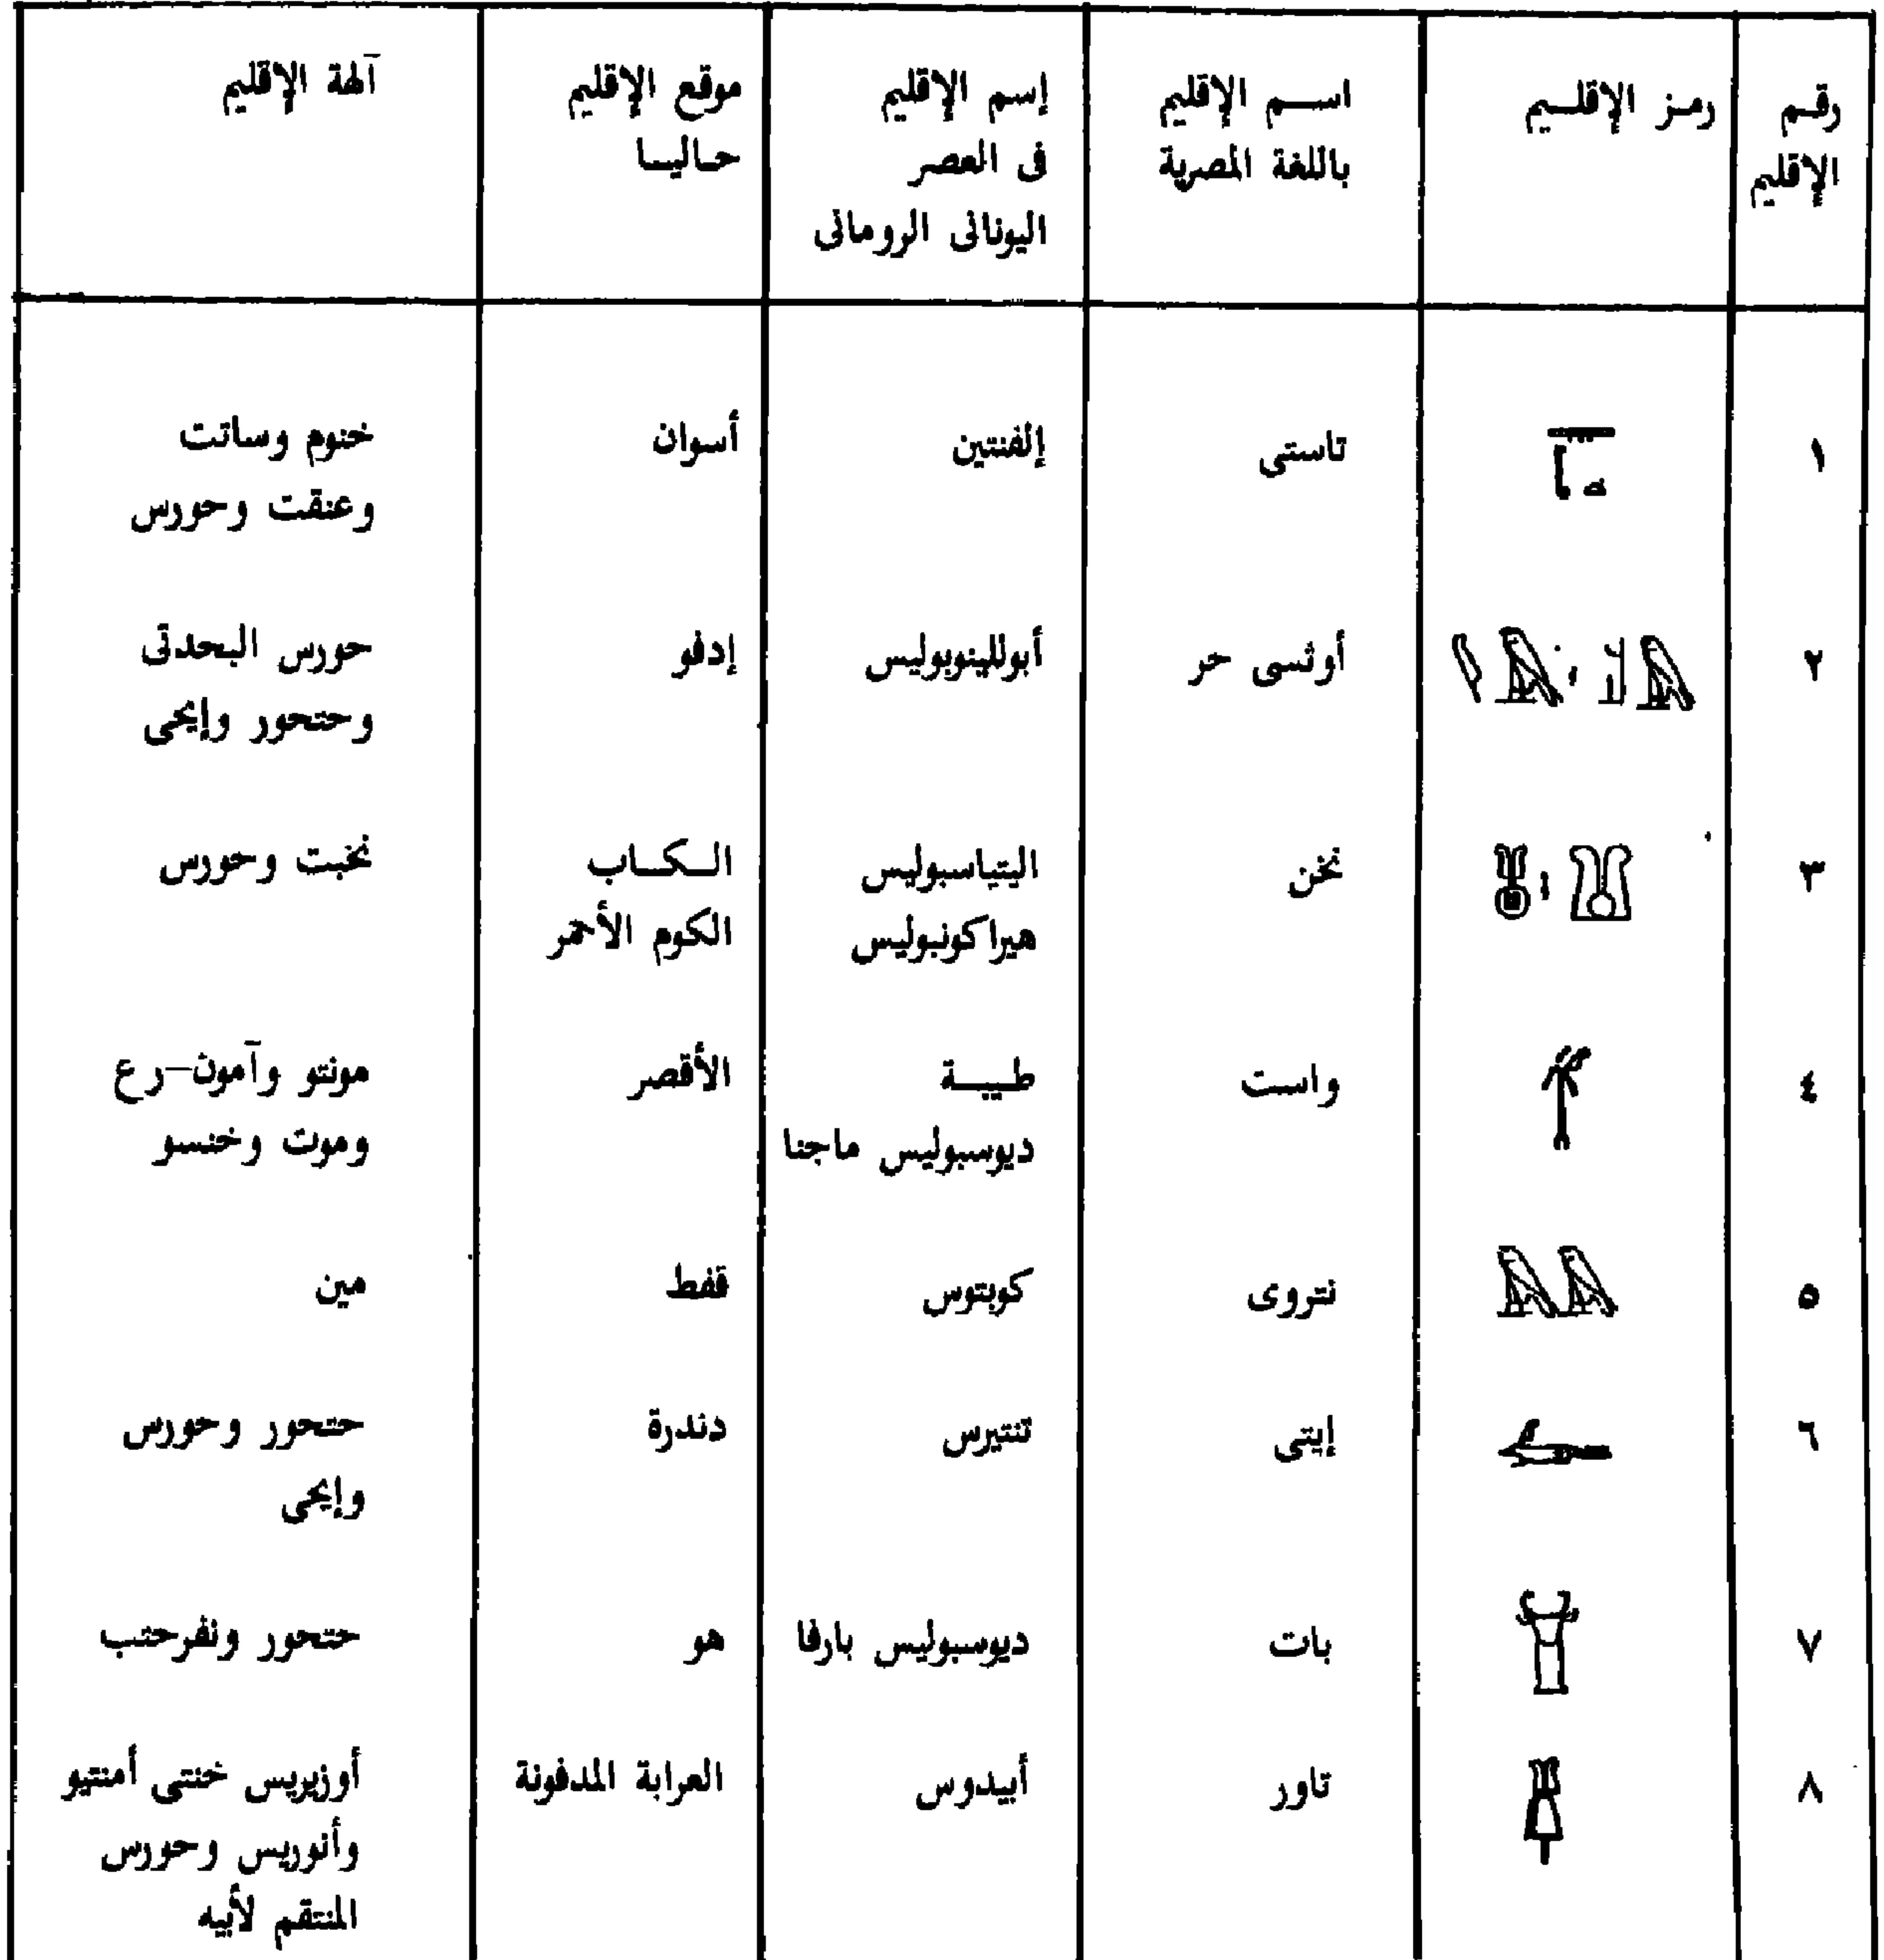 رقم الإقليم	رمز الإقليم	اسم الإقليم باللغة المصرية	إسم الإقليم فى العصر اليونانى الرومانى	موقع الإقليم حاليا	آلهة الإقليم
١	تاستى	إلفنتين	أسوان	خنوم وساتت
وعنقت وحورس
٢	أوتسى حر	أبوللينوبوليس	إدفو	حورس البحدتى
وحتحور وإيحى
٣	نخن	اليتياسبوليس	الكاب	نخبت وحورس
هيراكونبوليس	الكوم الأحمر
٤	واست	طيبة	الأقصر	مونتو وآمون-رع
ديوسبوليس ماجنا	وموت وخنسو
٥	نتروى	كوبتوس	قفط	مين
٦	إيتى	تنتيرس	دندرة	حتحور وحورس
وإيحى
٧	بات	ديوسبوليس بارفا	هو	حتحور ونفرحتب
٨	تاور	أبيدوس	العرابة المدفونة	أوزيريس خنتى أمنتيو
وأنوريس وحورس
المنتقم لأبيه